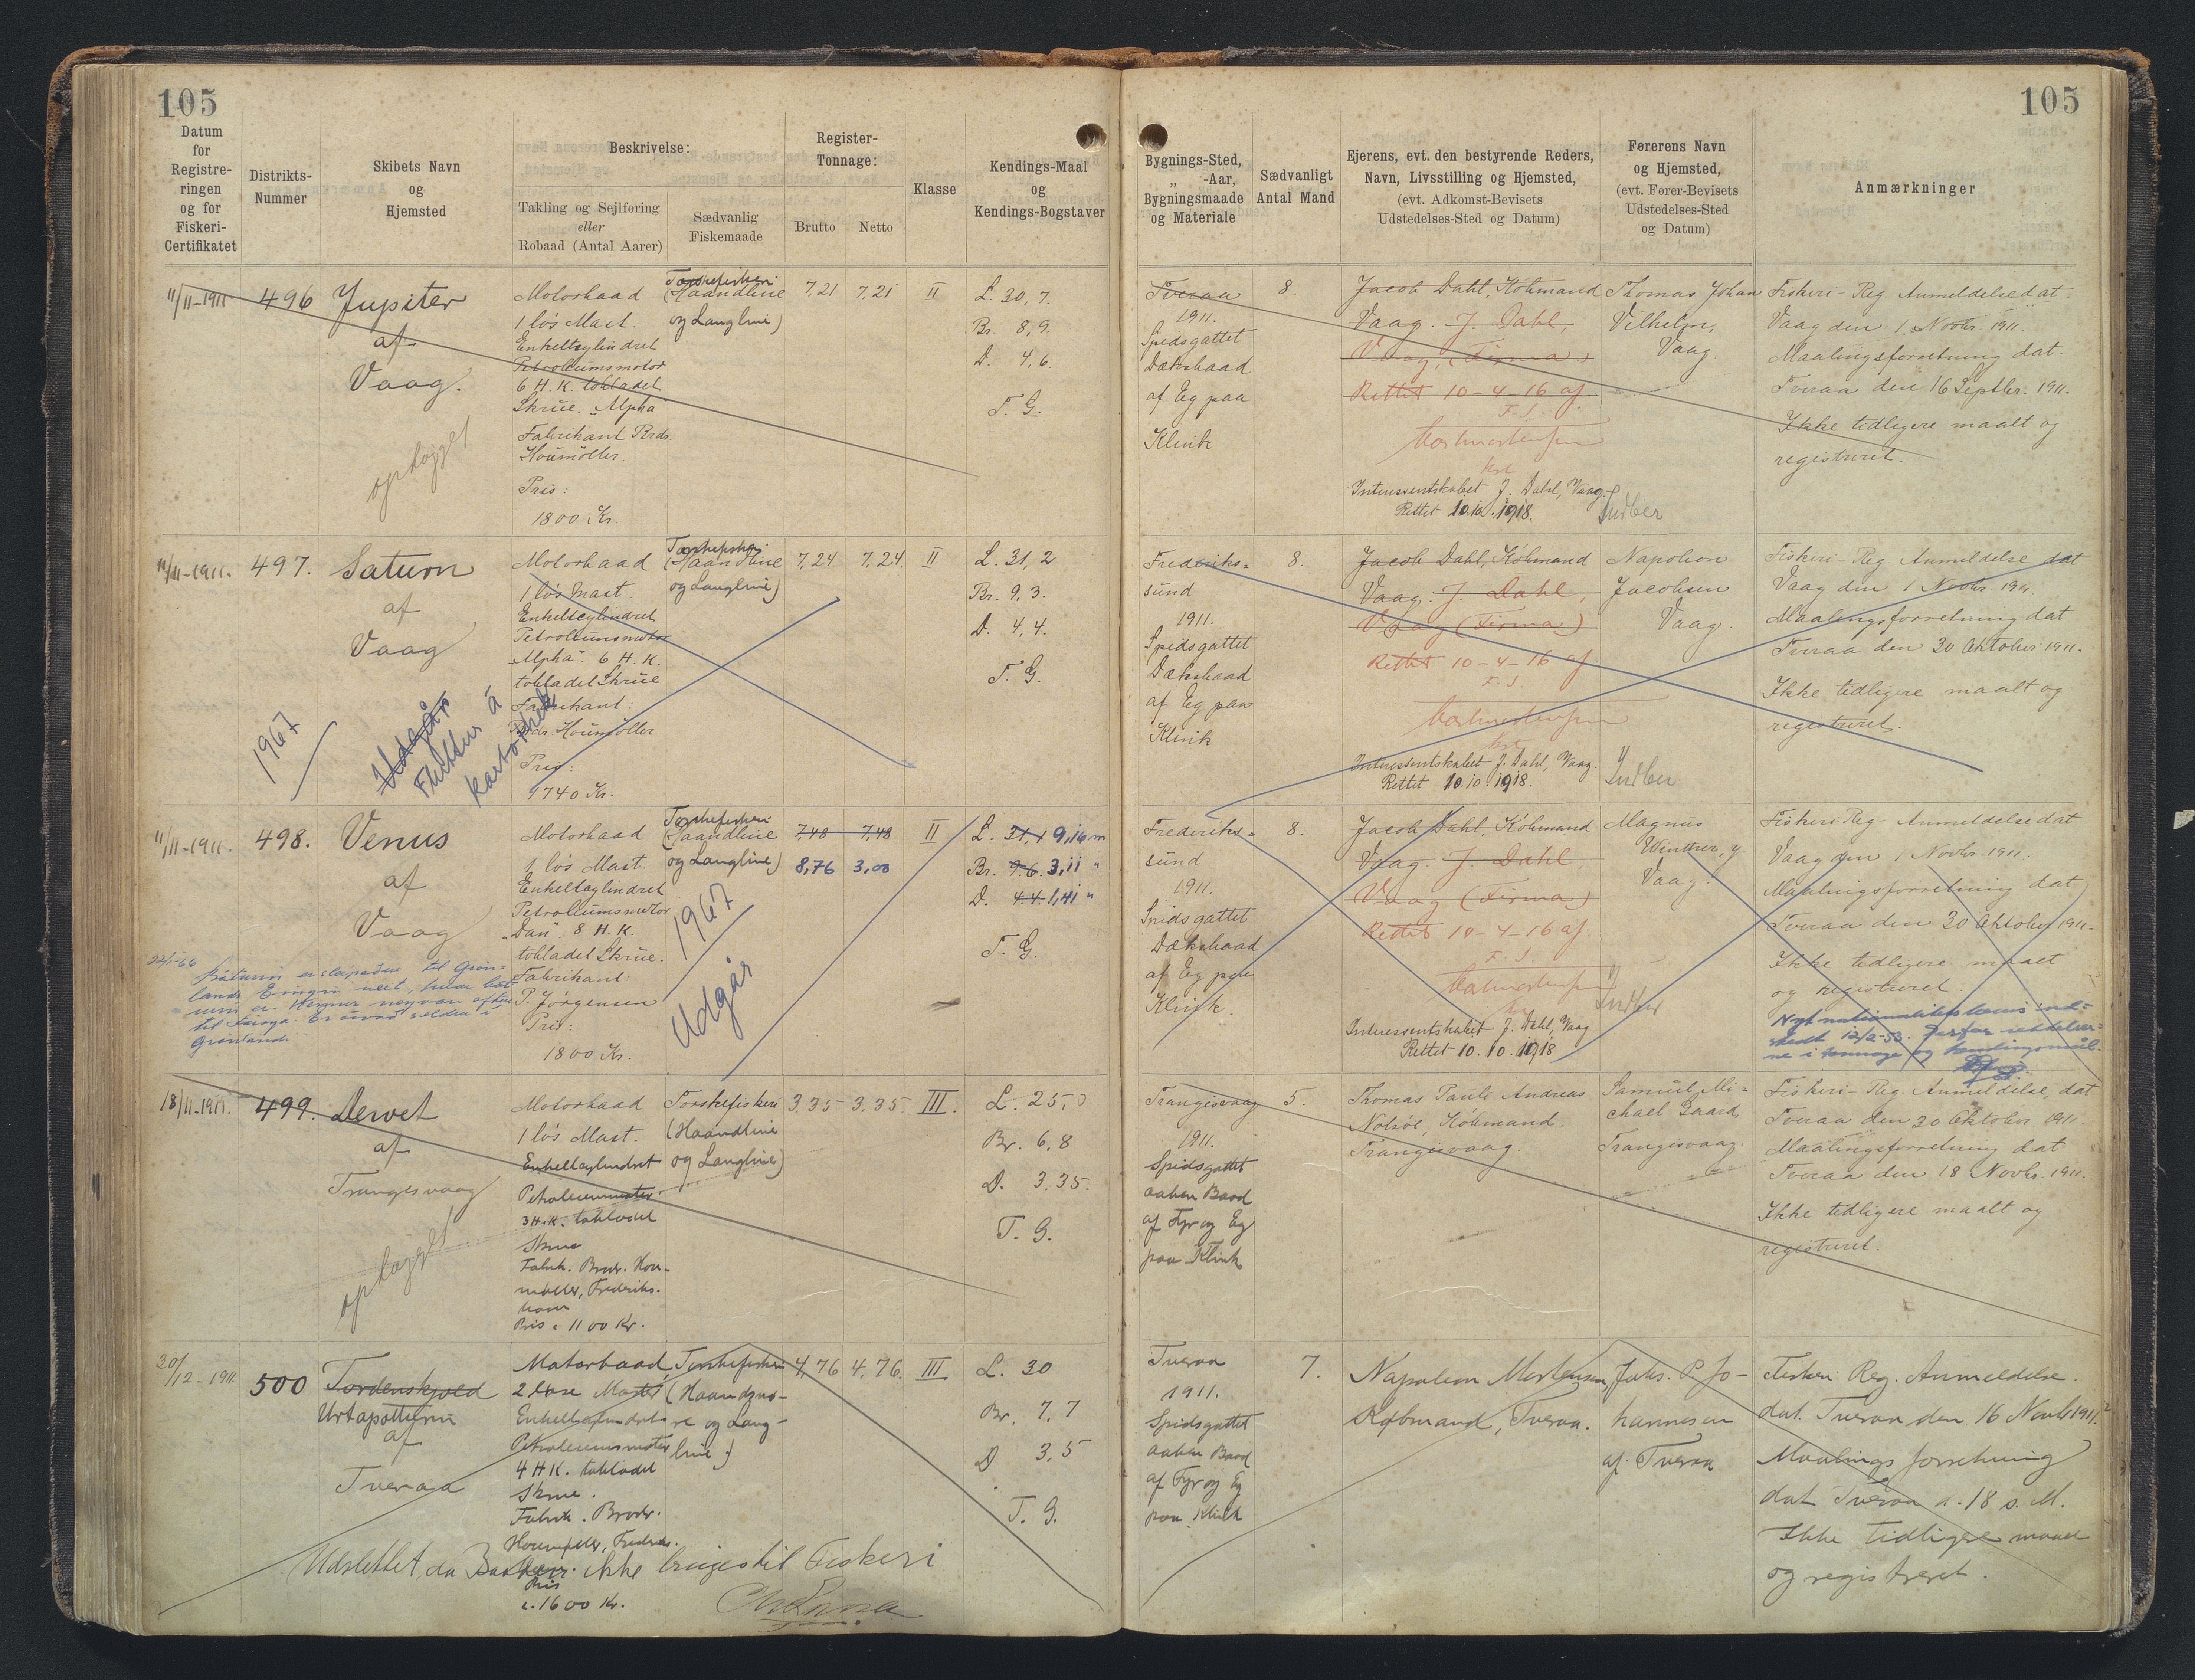 105
105
Datum
for
Registre-
ringen
og for
Fiskeri-
Certifikatet
Distrikts-
Nummer
Skibets Navn
og
Hjemsted
Beskrivelse:
Takling og Sejlføring
eller
Robaad (Antal Aarer)
Sædvanlig
Fiskemaade
Register-
Tonnage:
Brutto
Netto
Klasse
Kendings-Maal
og
Kendings-Bogstaver
Bygnings-Sted,
„ -Aar,
Bygningsmaade
og Materiale
Sædvanligt
Antal Mand
Ejerens, evt. den bestyrende Reders,
Navn, Livsstilling og Hjemsted,
(evt. Adkomst-Bevisets
Udstedelses-Sted og Datum)
Førerens Navn
og Hjemsted,
(evt. Fører-Bevisets
Udstedelses-Sted
og Datum)
Anmærkninger
11/11-1911.
496
Jupiter
af
Vaag.
ophogget
Motorbaad
1 løs Mast.
Enkeltcylindret
Petroleumsmotor
6 H.K. tobladet
Skrue. „Alpha"
Fabrikant Brdr.
Houmöller.
Pris:
1800 Kr.
Torskefiskeri
(Haandline
og Langline)
7,21
7,21
II
L. 30,7.
Br. 8,9.
D. 4,6.
T. G.
Tveraa
1911.
Spidsgattet
Dæksbaad
af Eg paa
Klink
8.
Jacob Dahl, Købmand
Vaag. J. Dahl,
Vaag, (Firma)
Rettet 10-4-16 af
F. S.
Interessentskabet J. Dahl, Vaag.
Rettet 10.10.1918.
Thomas Johan
Vilhelm,
Vaag.
Fiskeri-Reg. Anmeldelse dat.
Vaag den 1. Novbr. 1911.
Maalingsforretning dat.
Tveraa den 16 Septbr. 1911.
Ikke tidligere maalt og
registreret.
11/11-1911.
497.
Saturn
af
Vaag
1967
Udgår
Fluttur á
kartotek
Motorbaad
1 løs Mast.
Enkeltcylindret
Petroleumsmotor
„Alpha". 6 H.K.
tobladet Skrue
Fabrikant:
Brdr. Houmöller
Pris:
1740 Kr.
Torskefiskeri
(Haandline
og Langline)
7,24
7,24
II
L. 31,2
Br. 9,3.
D. 4,4.
T. G.
Frederiks-
sund
1911.
Spidsgattet
Dæksbaad
af Eg paa
Klink
8.
Jacob Dahl, Købmand
Vaag. J. Dahl,
Vaag (Firma)
Rettet 10-4-16 af
F. S.
Interessentskabet J. Dahl, Vaag.
Rettet 10.10.1918.
Napoleon
Jacobsen
Vaag.
Fiskeri-Reg. Anmeldelse dat
Vaag den 1 Novbr. 1911.
Maalingsforretning dat
Tveraa den 30 Oktober 1911.
Ikke tidligere maalt og
registreret.
11/11-1911.
498.
Venus
af
Vaag
Grønland.
Motorbaad
1 løs Mast.
Enkeltcylindret
Petroleumsmotor
„Dan" 8 H.K.
tobladet Skrue.
Fabrikant:
P. Jørgensen
Pris:
1800 Kr.
Torskefiskeri
(Haandline
og Langline)
1967
Udgår
7,48 7,48
8,76 3,00
II
L. 31,1 9,16 m
Br. 9.6 3,11 "
D. 4.4 1,41 "
T. G.
Frederiks-
sund
1911.
Spidsgattet
Dæksbaad
af Eg paa
Klink.
8.
Jacob Dahl, Købmand
Vaag. J. Dahl
Vaag (Firma)
Rettet 10-4-16 af.
F. S.
Interessentskabet J. Dahl, Vaag
Rettet 10.10.1918
Magnus
Vaag.
Fiskeri-Reg. Anmeldelse dat
Vaag den 1 Novbr. 1911.
Maalingsforretning dat
Tveraa den 30 Oktober 1911.
Ikke tidligere maalt
og registreret.
18/11-1911.
499.
af
Trangisvaag
ophogget
Motorbaad
1 løs Mast.
Enkeltcylindret
Petroleummotor
3 H.K. tobladet
Skrue
Fabrik. Brdr. Hou-
møller, Frederiks-
havn
Pris c 1100 Kr.
Torskefiskeri
(Haandline
og Langline)
3.35
3.35
III.
L. 25,0
Br. 6,8
D. 3.35.
T. G.
Trangisvaag
1911.
Spidsgattet
aaben Baad
af Fyr og Eg
paa Klink
5.
Thomas Pauli Andreas
Nolsøe, Købmand.
Trangisvaag.
Samuel Mi-
chael Gaard
Trangisvaag.
Fiskeri-Reg. Anmeldelse, dat
Tveraa den 30 Oktober 1911.
Maalingsforretning dat
Tveraa den 18 Novbr. 1911.
Ikke tidligere maalt og
registreret.
30/12-1911
500
Tordenskjold
Urtapotturin
af
Tveraa
Motorbaad,
2 løse Master,
Enkeltcylindret
Petroleumsmotor
4 H.K. tobladet
Skrue.
Fabrik. Brodr.
Houmøller, Fredriks.
havn.
Pris
c. 1600 Kr.
Torskefiskeri
(Haandsnø-
re og Lang-
line)
4,76
4,76.
III
L. 30
Br. 7,7
D 3,5
T. G.
Udslettet, da Baaden ikke bruges til Fiskeri
Tveraa
1911.
Spidsgattet
aaben Baad
af Fyr og Eg
paa Klink
7.
Napoleon Mortensen,
Købmand, Tveraa.
Johs. P. Jo-
hannesen
af Tveraa
Fiskeri Reg. Anmeldelse.
dat. Tveraa den 16 Novbr 1911.
Maalings forretning
dat Tveraa d. 18 s. M.
Ikke tidligere maalt
og registreret.